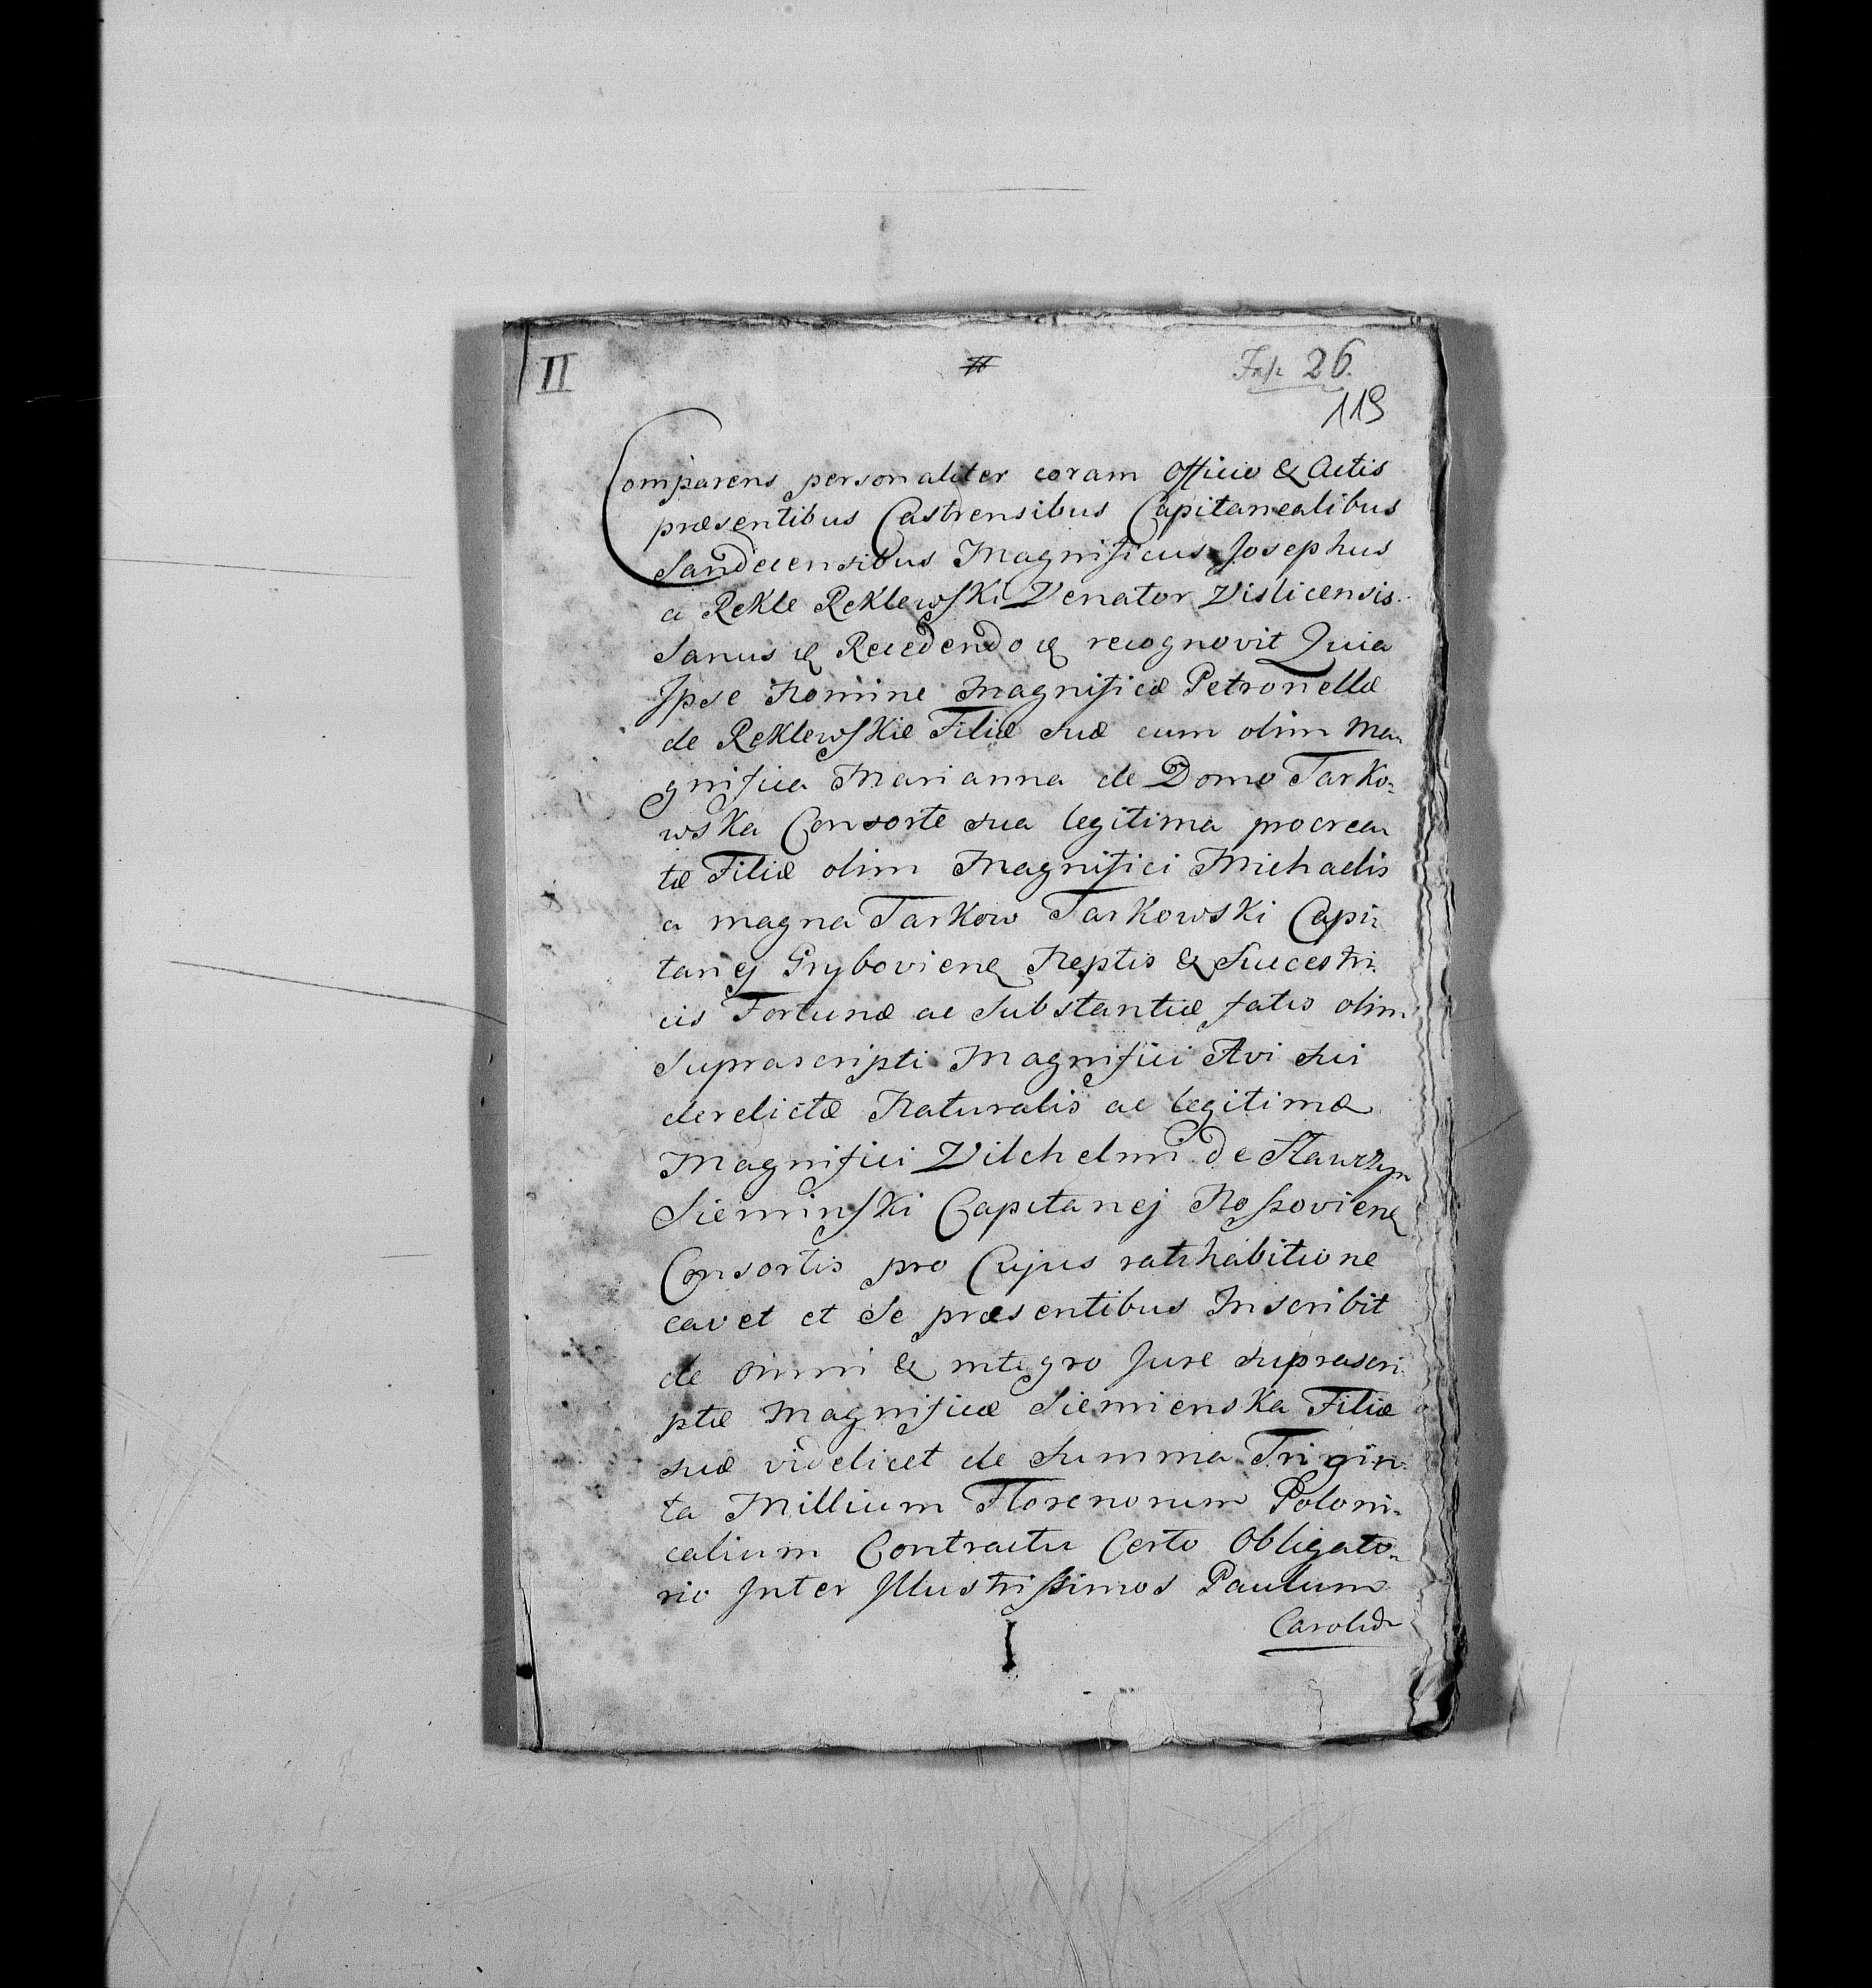 II
#
Fas. 26.
119
Comparens personaliter coram Officio & Actis
præsentibus Castrensibus Capitanealibus
Sandecensibus Magnificus Josephus
a Rekle Reklewski Venator Vislicensis
Sanus & Recedendo & recognovit Quia
Ipse Nomine Magnificæ Petronellæ
de Reklewskie Filiæ suæ cum olim Ma
gnifica Marianna de Domo Tarko:
wska Consorte sua legitima procrea
tæ Filiæ olim Magnifici Michaelis
a magna Tarkow Tarkowski Capi:
tanej Grybovien Neptis & Succestri
cis Fortunæ ac Substantiæ fatis olim
Suprascripti Magnifici Avi sui
derelictæ Naturalis ac legitimæ
Magnifici Vilchelmi de
Sieminski Capitanej Rossovien
Consortis pro Cujus ratihabitione
cavet et Se præsentibus Inscribit
de omni & integro Jure suprascri
ptæ Magnificæ Siemienska Filiæ
suæ videlicet de Summa Trigin
ta Millium Florenorum Poloni
calium Contractu Certo Obligato
rio Inter Illustrissimos Paulum